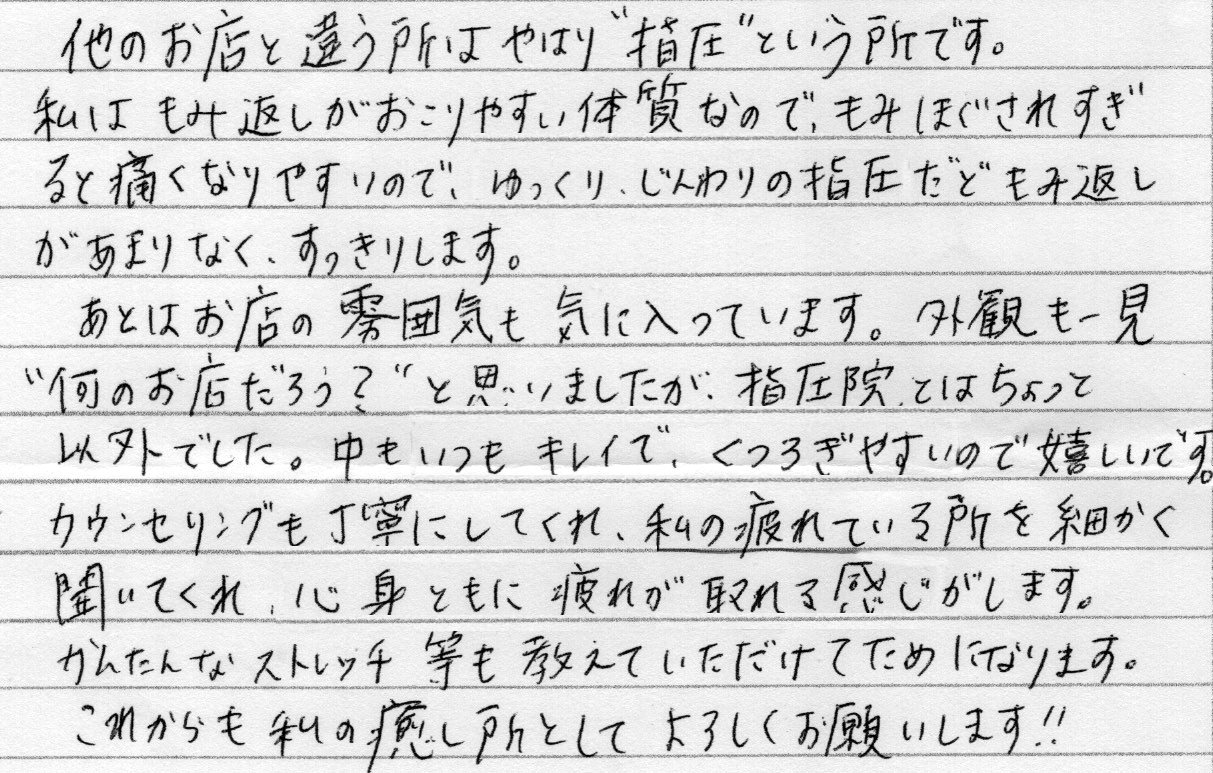 他のお店と違う所はやはり"指圧"という所です。
私はもみ返しがおこりやすい体質なので、もみほぐされすぎ
ると痛くなりやすいので、ゆっくり、じんわりの指圧だともみ返し
があまりなく、すっきりします。
あとはお店の雰囲気も気に入っています。外観も一見
"何のお店だろう?"と思いましたが、指圧院とはちょっと
以外でした。中もいつもキレイで、くつろぎやすいので嬉しいです。
カウンセリングも丁寧にしてくれ、私の疲れている所を細かく
聞いてくれ、心身ともに疲れが取れる感じがします。
かんたんなストレッチ等も教えていただけてためになります。
これからも私の癒し所としてよろしくお願いします!!